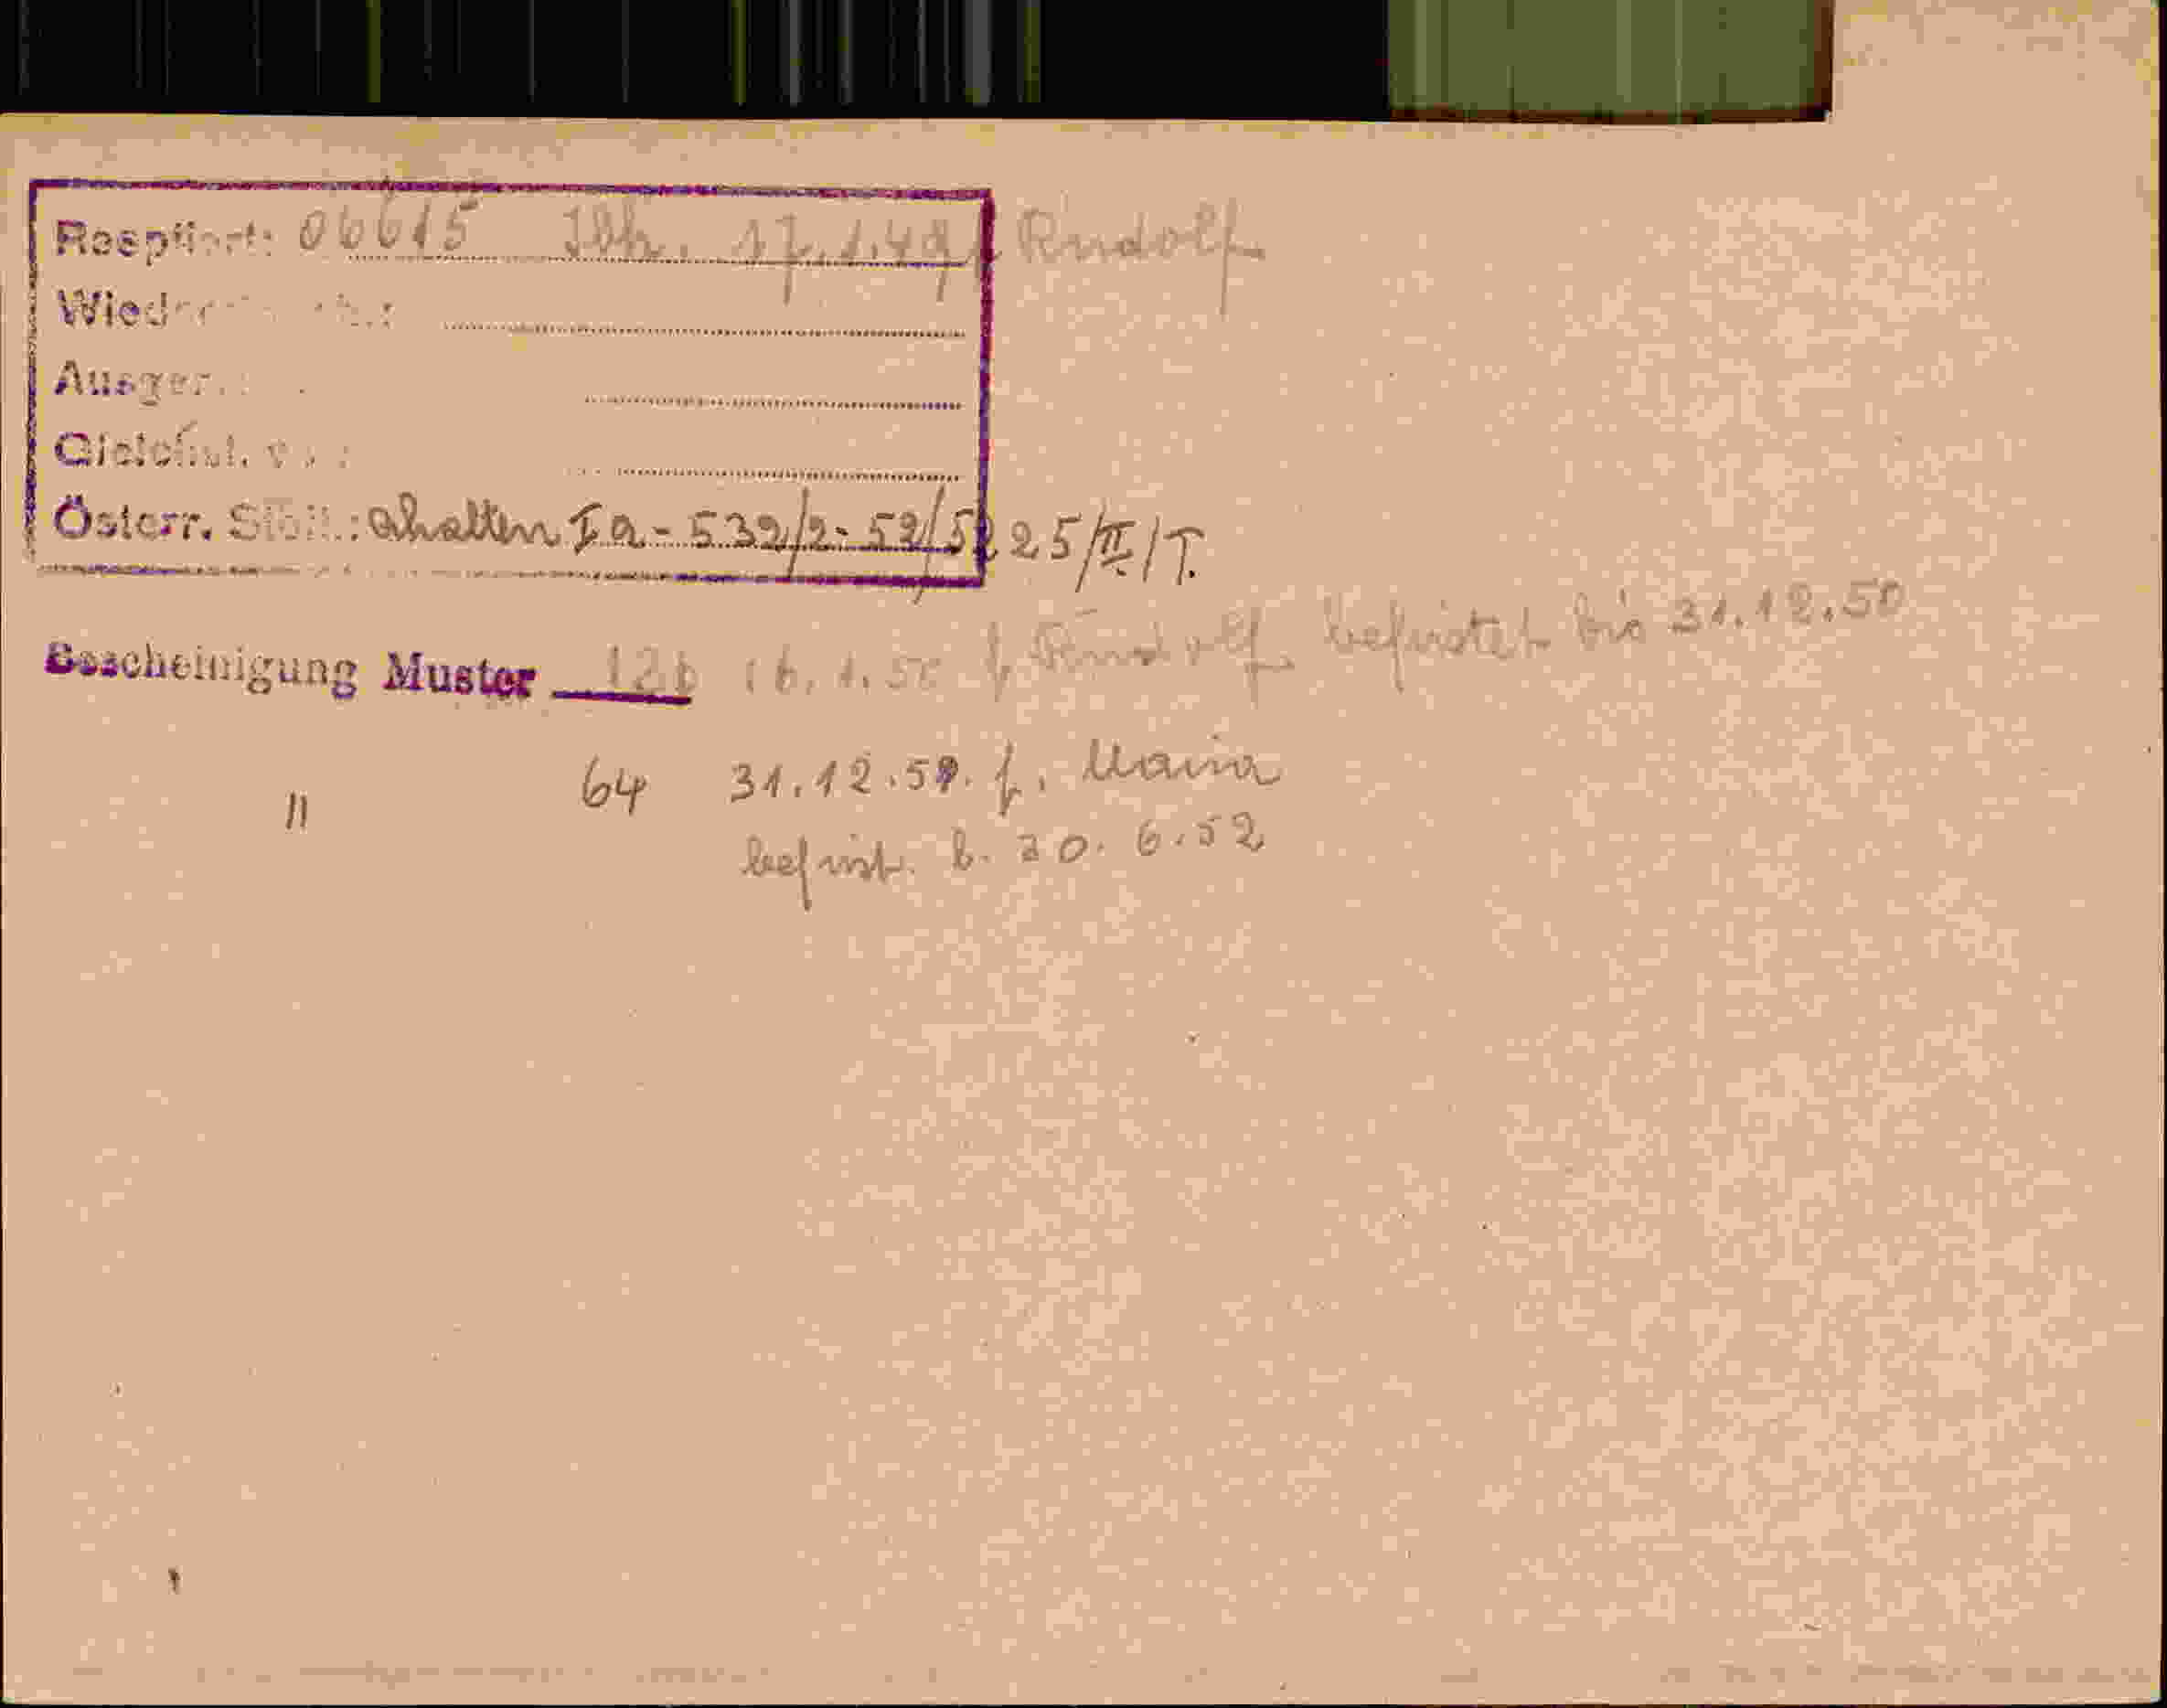 06615 Ibk. 17.1.49 f. Rudolf
Österr. Stbü.: erhalten Ia-532/2-52/5225/II/T.
Bescheinigung Muster 12b 16.1.50 f. Rudolf befristet bis 31.12.50
" 64 31.12.51. f. Maria
befrist. b. 30. 6. 52